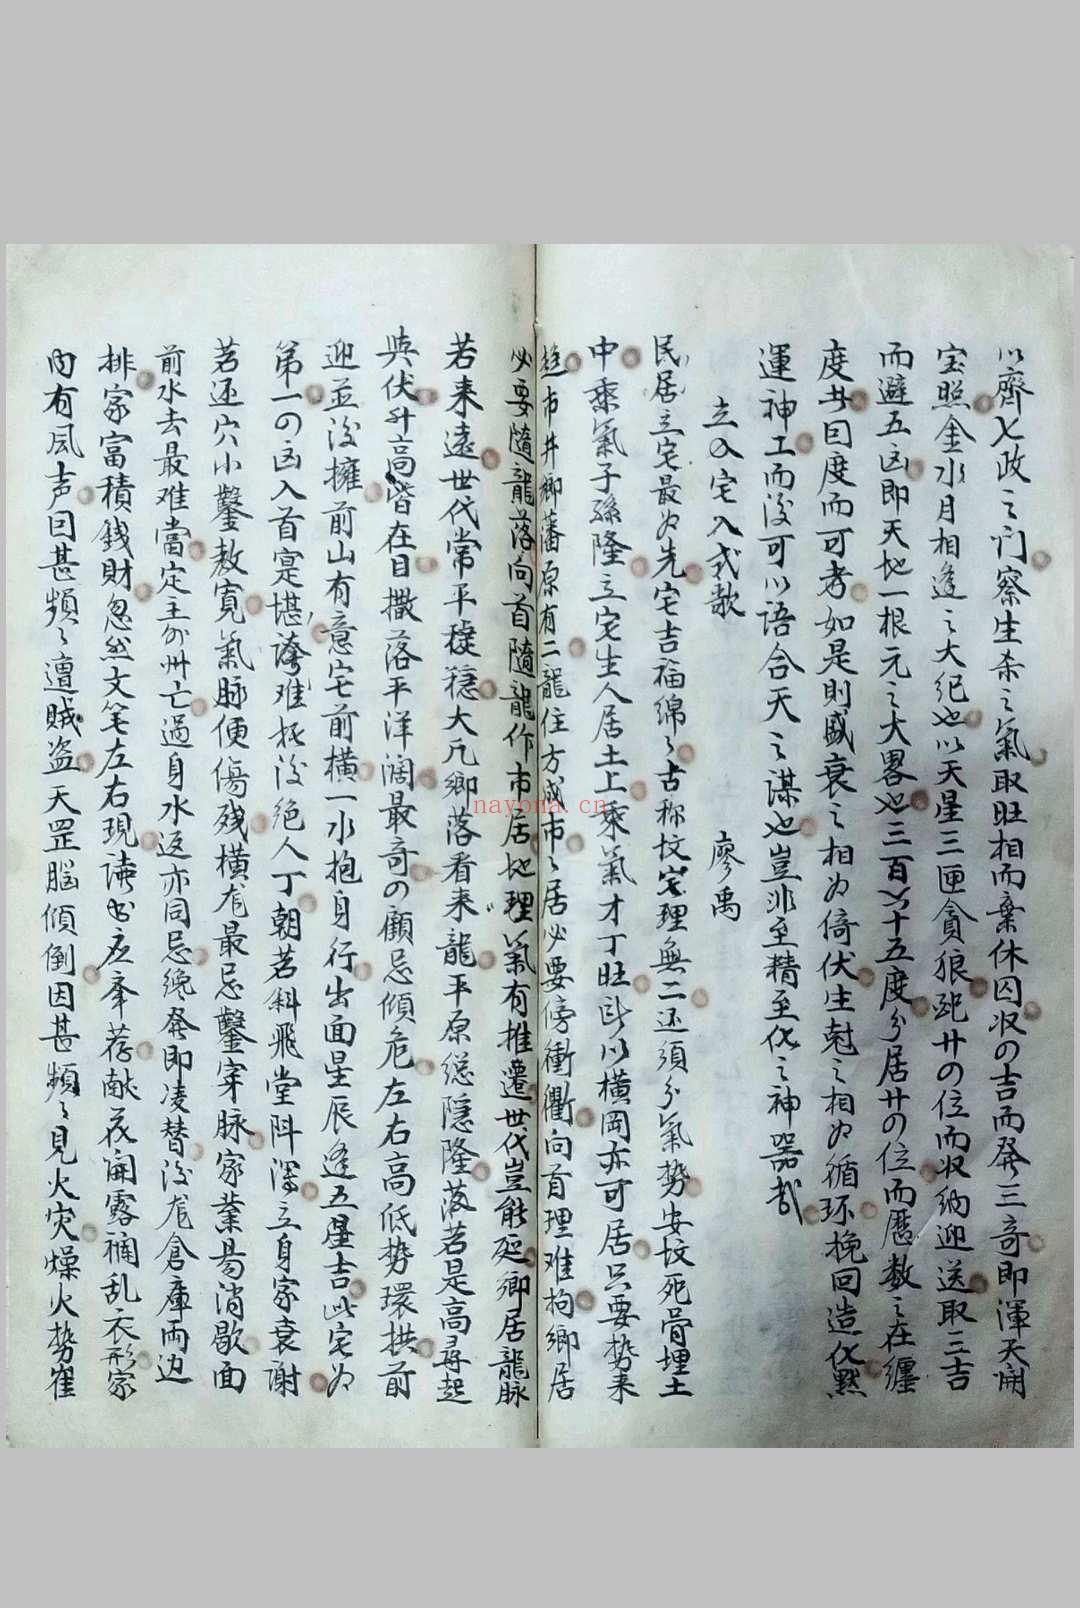 以齊七政之门察生杀之氣取旺相而棄休囚収の吉而發三竒即渾天闹
宝照金水月相逢之大纪也以天星三匣貪狼跑廾の位而収納迎送取三吉
而避五凶即天地一根元之大畧也三百六十五度分居廾の位而曆数之在纏
度者因度而可考如是則盛衰之相为倚伏生尅之相为循环挽回造化黙
運神工而後可以语合天之謀也豈非至精至化之神噐哉
立入宅入式歌 廖禹
民居立宅最为先宅吉福绵々古称坟宅理無二还須分氣势安坟死骨埋土
中乘氣子孫隆立宅生人居土上乘氣才丁旺卧以横岡亦可居只要势来
市井鄉藩原有二龍住方成市々居必要傍衝衢向首理难拘鄉居
必要随龍落向首隨龍作市居地理氣有推遷世代豈能延鄉居龍脉
若来遠世代常平穩大凡鄉落看来龍平原総隐隆落若是高尋起
與伏升高皆在目撒落平洋濶最竒の顧忌傾危左右高低势環拱前
迎並後擁前山有意宅前横一水抱身行出面星辰逢五星吉此宅为
第一の凶入首寔堪誇难拯後绝人丁朝若斜飛堂阧深立身家衰谢
若还穴小鑿教寬氣脉便傷残横龙最忌鑿穿脉家業昜消歇面
前水去最难當定主外州亡過身水返亦同忌纔發即凌替後龙倉庫両边
排家富積錢財忽然文笔左右現读书应奉荐献花開露襧乱衣形家
内有风声回甚頻々遭贼盗天罡脳傾倒因甚頻々見火灾燥火势崔
nayona.cn